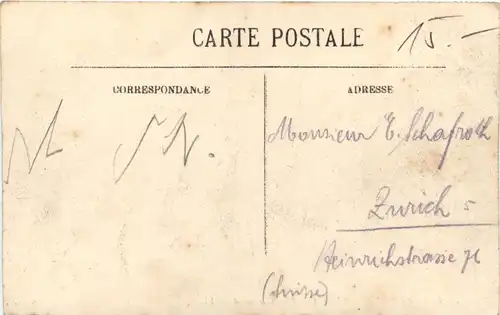 CARTE POSTALE
15.-
CORRESPONDANCE
ADRESSE
Monsieur E. Schafroth
Zurich 5
Heinrichstrasse 71
(Suisse)